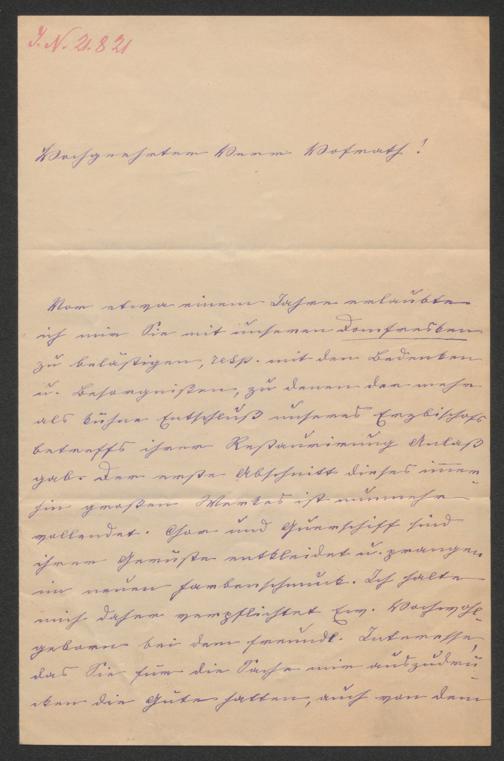 J. N. 21.821
Hochgeehrter Herr Hofrath!
Vor etwa einem Jahre erlaubte
ich mir Sie mit unseren Domfresken
zu belästigen, resp. mit den Bedenken
u. Besorgnißen, zu denen der mehr
als kühne Entschluß unseres Erzbischofs
betreffs ihrer Restaurirung Anlaß
gab. Der erste Abschnitt dieses immer-
hin großen Werkes ist nunmehr
vollendet. Chor und Querschiff sind
ihrer Gerüste entkleidet u. prangen
im neuen Farbenschmuck. Ich halte
mich daher verpflichtet Ew. Hochwohl-
geboren bei dem freundl. Interesse,
das Sie für die Sache mir auszudrü-
cken die Güte hatten, auch von dem